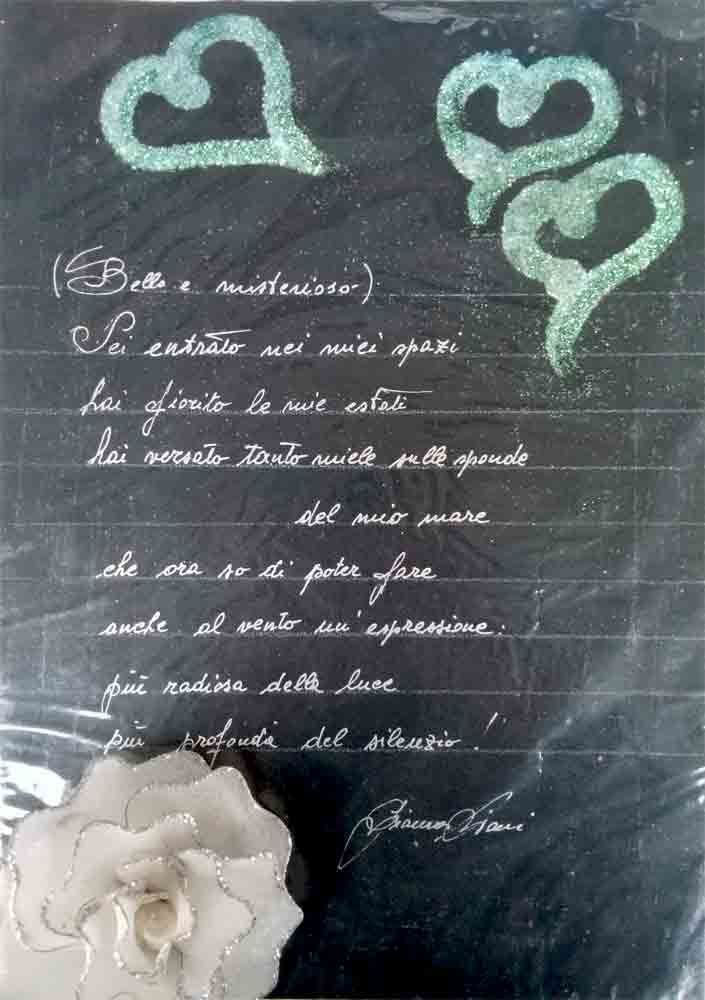 (Bello e misterioso)
Sei entrato nei miei spazi
hai fiorito le mie estati
hai versato tanto miele sulle sponde
del mio mare
che ora so di poter fare
anche al vento un'espressione:
più radiosa della luce
più profonda del silenzio!